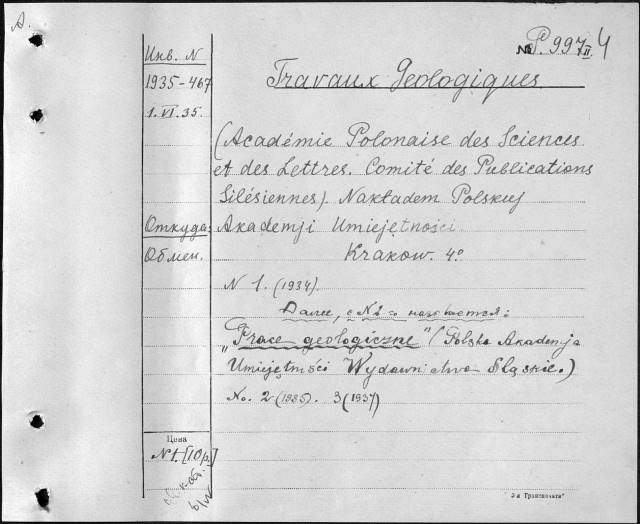 А.
№ P. 997/II 4
Инв. N
1935-467
1.VI.35.
Travaux Geologiques
(Académie Polonaise des Sciences
et des Lettres. Comité des Publications
Silésiennes). Nakładem Polskiej
Откуда:
Akademji Umiejętności.
Обмен.
Krakow. 4°
N 1. (1934).
Далее, с N 2 называется:
"Prace geologiczne" (Polska Akademja
Umiejętności Wydawnictwa Śląskie.)
No. 2 (1935). 3 (1937)
Цена
N 1. [10 р.]
"3-я Транспечать"